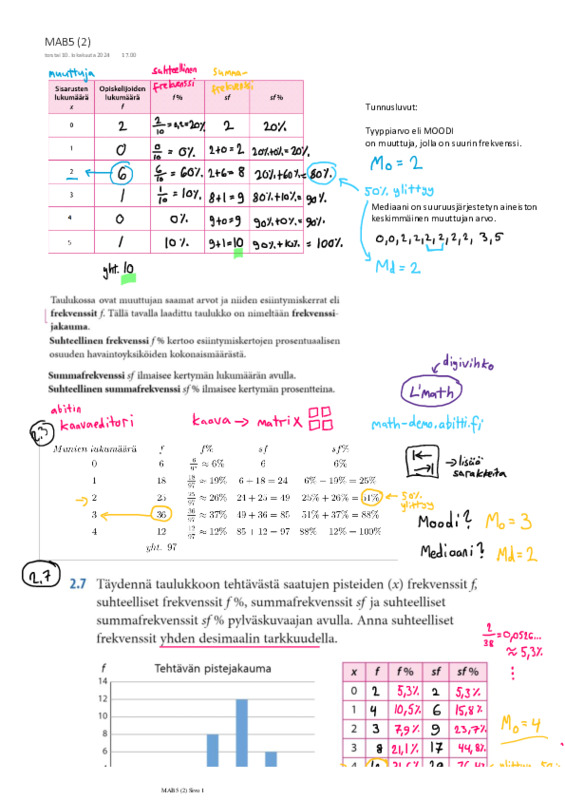 MAB5 (2)
torstai 10. lokakuuta 2024 17.00
muuttuja
suhteellinen frekvenssi
summa-frekvenssi
Sisarusten lukumäärä x Opiskelijoiden lukumäärä f f% sf sf%
0 2 2/10 = 0,2 = 20% 2 20%
1 0 0/10 = 0% 2+0=2 20%+0%=20%
2 6 6/10 = 60% 2+6=8 20%+60%=80%
3 1 1/10 = 10% 8+1=9 80%+10%=90%
4 0 0% 9+0=9 90%+0%=90%
5 1 10% 9+1=10 90%+10%=100%
yht. 10
Tunnusluvut:
Tyyppiarvo eli MOODI
on muuttuja, jolla on suurin frekvenssi.
Mo = 2
50% ylittyy
Mediaani on suuruusjärjestetyn aineiston
keskimmäinen muuttujan arvo.
0,0,2,2,2,2,2,2,3,5
Md = 2
Taulukossa ovat muuttujan saamat arvot ja niiden esiintymiskerrat eli
frekvenssit f. Tällä tavalla laadittu taulukko on nimeltään frekvenssi-
jakauma.
Suhteellinen frekvenssi f % kertoo esiintymiskertojen prosentuaalisen
osuuden havaintoyksiköiden kokonaismäärästä.
Summafrekvenssi sf ilmaisee kertymän lukumäärän avulla.
Suhteellinen summafrekvenssi sf % ilmaisee kertymän prosentteina.
digivihko
L'math
math-demo.abitti.fi
abitin
kaavaeditori
kaava → matrix
2.3
Munien lukumäärä f f% sf sf%
0 6 6/97 ≈ 6% 6 6%
1 18 18/97 ≈ 19% 6 + 18 = 24 6% − 19% = 25%
2 25 25/97 ≈ 26% 24 + 25 = 49 25% + 26% = 51%
3 36 36/97 ≈ 37% 49 + 36 = 85 51% + 37% = 88%
4 12 12/97 ≈ 12% 85 + 12 − 97 88% 12% − 100%
yht. 97
→ lisää
sarakkeita
50%
ylittyy
Moodi? Mo = 3
Mediaani? Md = 2
2.7
2.7 Täydennä taulukkoon tehtävästä saatujen pisteiden (x) frekvenssit f,
suhteelliset frekvenssit f %, summafrekvenssit sf ja suhteelliset
summafrekvenssit sf % pylväskuvaajan avulla. Anna suhteelliset
frekvenssit yhden desimaalin tarkkuudella.
2/38 = 0,0526...
≈ 5,3%
f Tehtävän pistejakauma
14
12
10
8
6
x f f% sf sf%
0 2 5,3% 2 5,3%
1 4 10,5% 6 15,8%
2 3 7,9% 9 23,7%
3 8 21,1% 17 44,8%
Mo = 4
MAB5 (2) Sivu 1